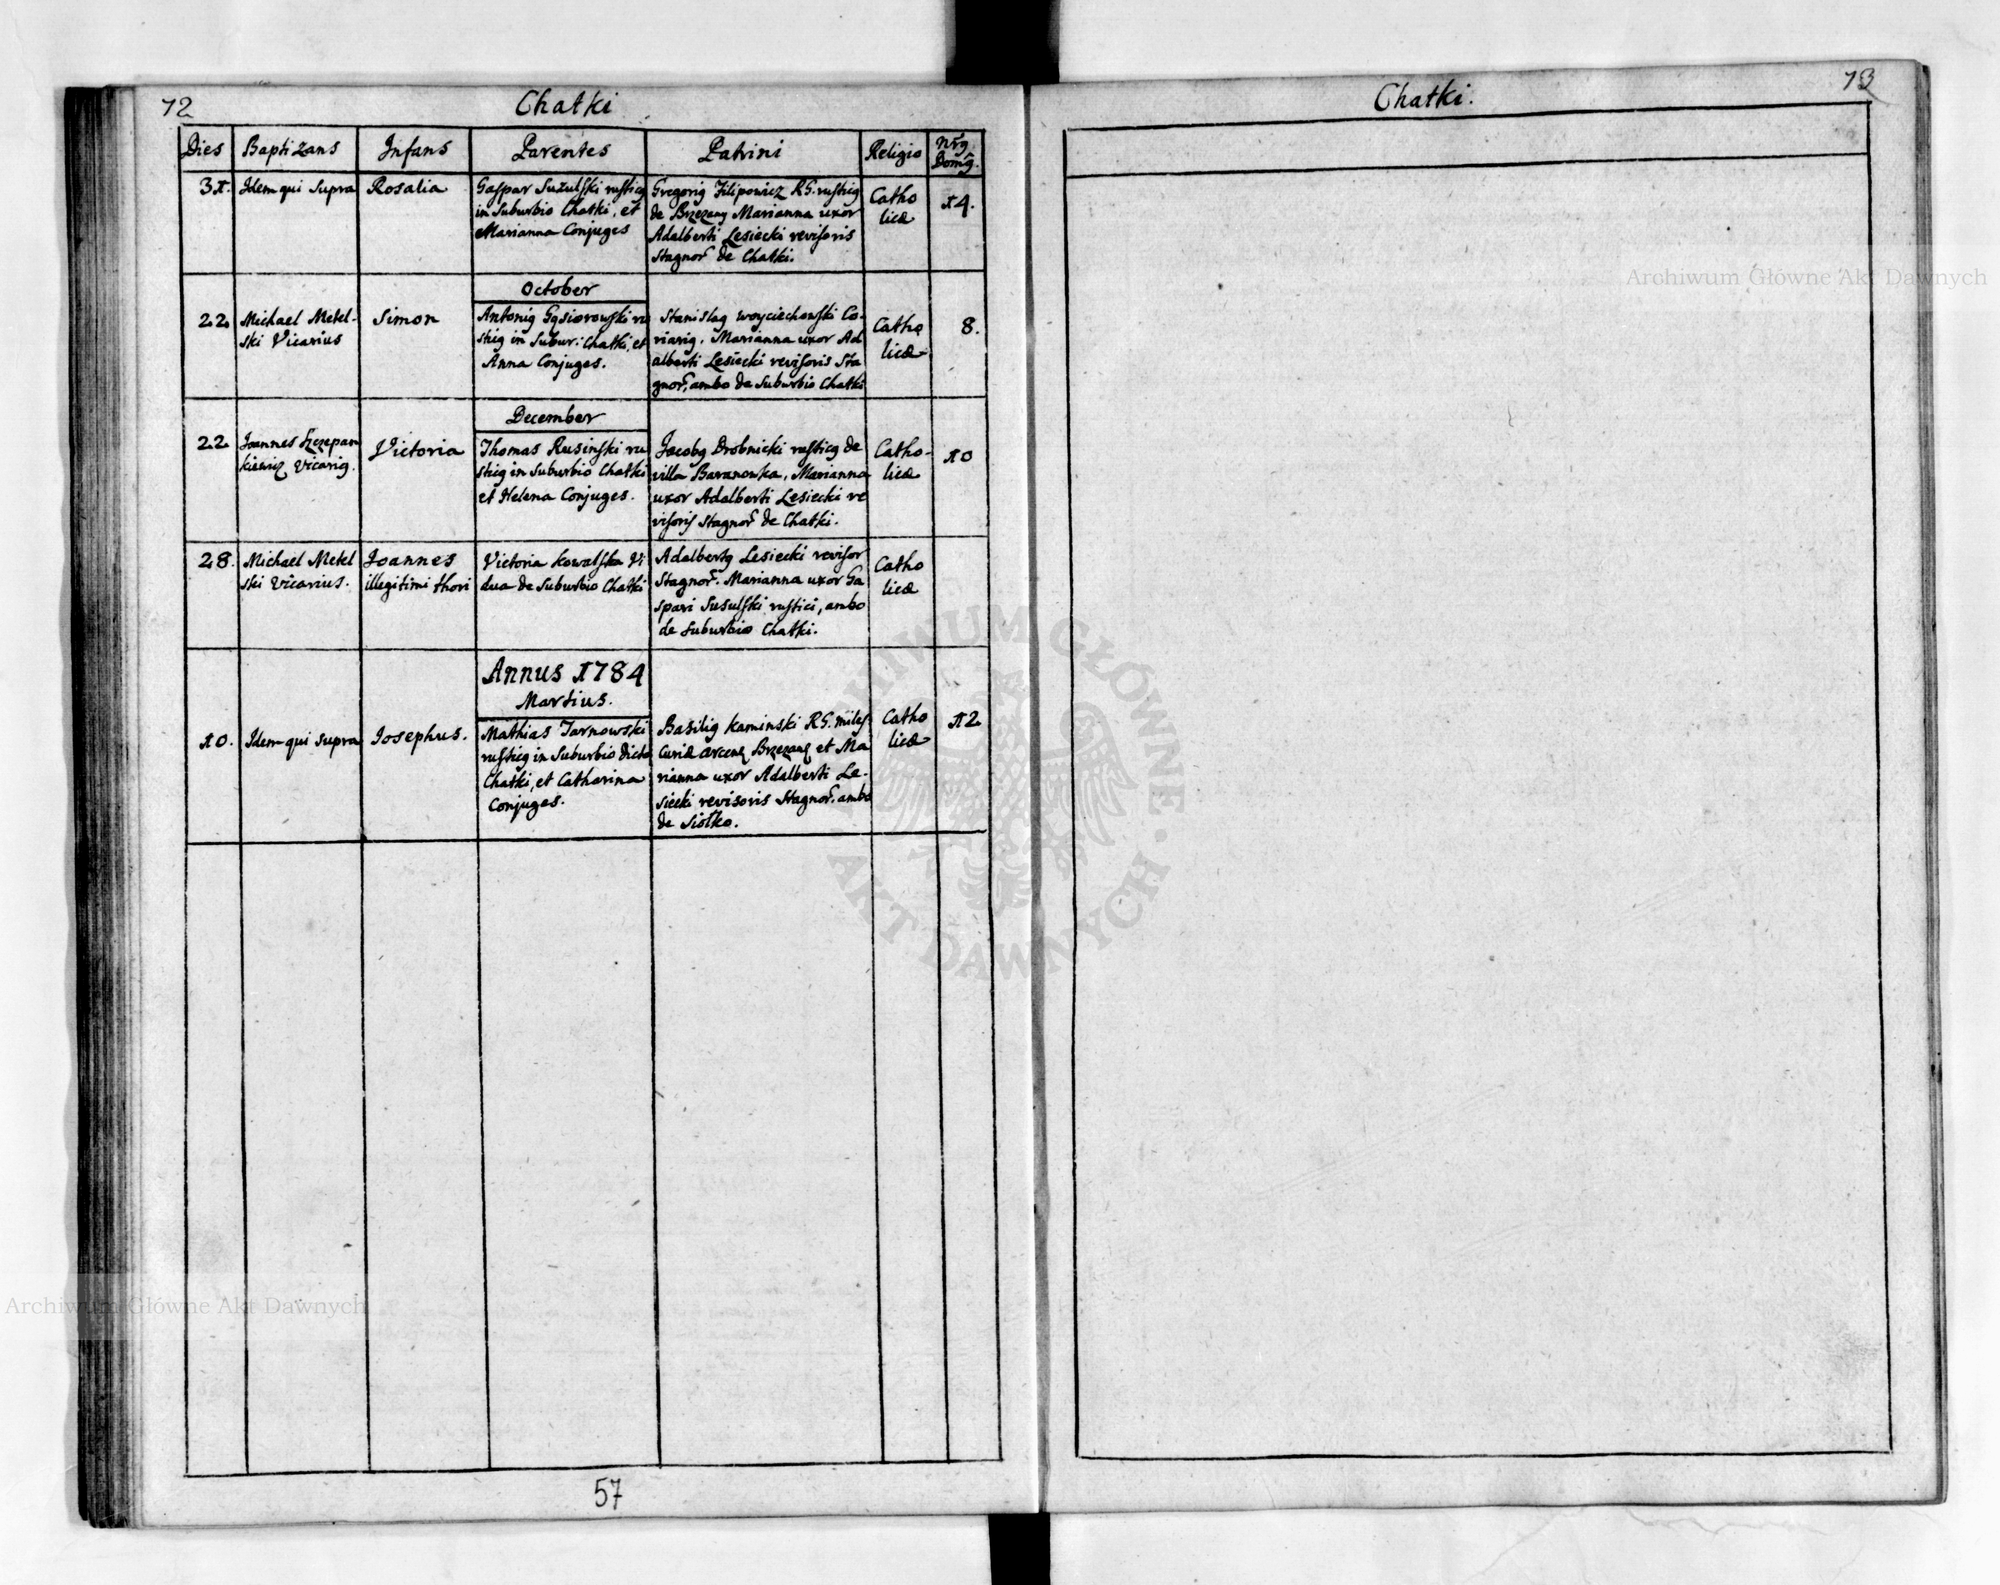 72
Chatki
Dies Baptizans Infans Parentes Patrini Religio Nrg Domg.
31. Idem qui supra Rosalia
Gaspar Suzulski rusticg
in Suburbio Chatki, et
Marianna Conjuges
Gregorig Filipowicz RG. rusticg
de Brzezany Marianna uxor
Adalberti Lesiecki revisoris
Stagnor de Chatki.
Catho
licæ
14.
October
22. Michael Metel-
ski Vicarius
Simon
Antonig Gąsiorowski ru
sticg in Subur: Chatki, et
Anna Conjuges.
Stanislag Woyciechowski Co-
riarig. Marianna uxor Ad
alberti Lesiecki revisoris Sta
gnor, ambo de Suburbio Chatki
Catho
licæ
8.
December
22 Joannes Szczepan
kiewicz Vicarig.
Victoria
Thomas Rusinski ru
sticg in Suburbio Chatki
et Helena Conjuges.
Jacobg Drobnicki rusticg de
villa Baranowka, Marianna
uxor Adalberti Lesiecki re
visoris Stagnor de Chatki.
Catho-
licæ
10
28. Michael Metel
ski Vicarius.
Joannes
illegitimi thori
Victoria Kowalska Vi
dua de Suburbio Chatki
Adalbertg Lesiecki revisor
Stagnor. Marianna uxor Ga
spari Susulski rustici, ambo
de Suburbio Chatki.
Catho
licæ
Annus 1784
Martius.
10. Idem qui supra Josephus.
Mathias Tarnowski
rusticg in Suburbio dicto
Chatki, et Catharina
Conjuges.
Basilig Kaminski RG. miles
Curiæ Brzezanę et Ma
rianna uxor Adalberti Le-
siecki revisoris Stagnor. ambo
de Siołko.
Catho
licæ
12
57
Chatki.
73
Archiwum Główne Akt Dawnych
Archiwum Główne Akt Dawnych
ARCHIWUM GŁÓWNE AKT DAWNYCH